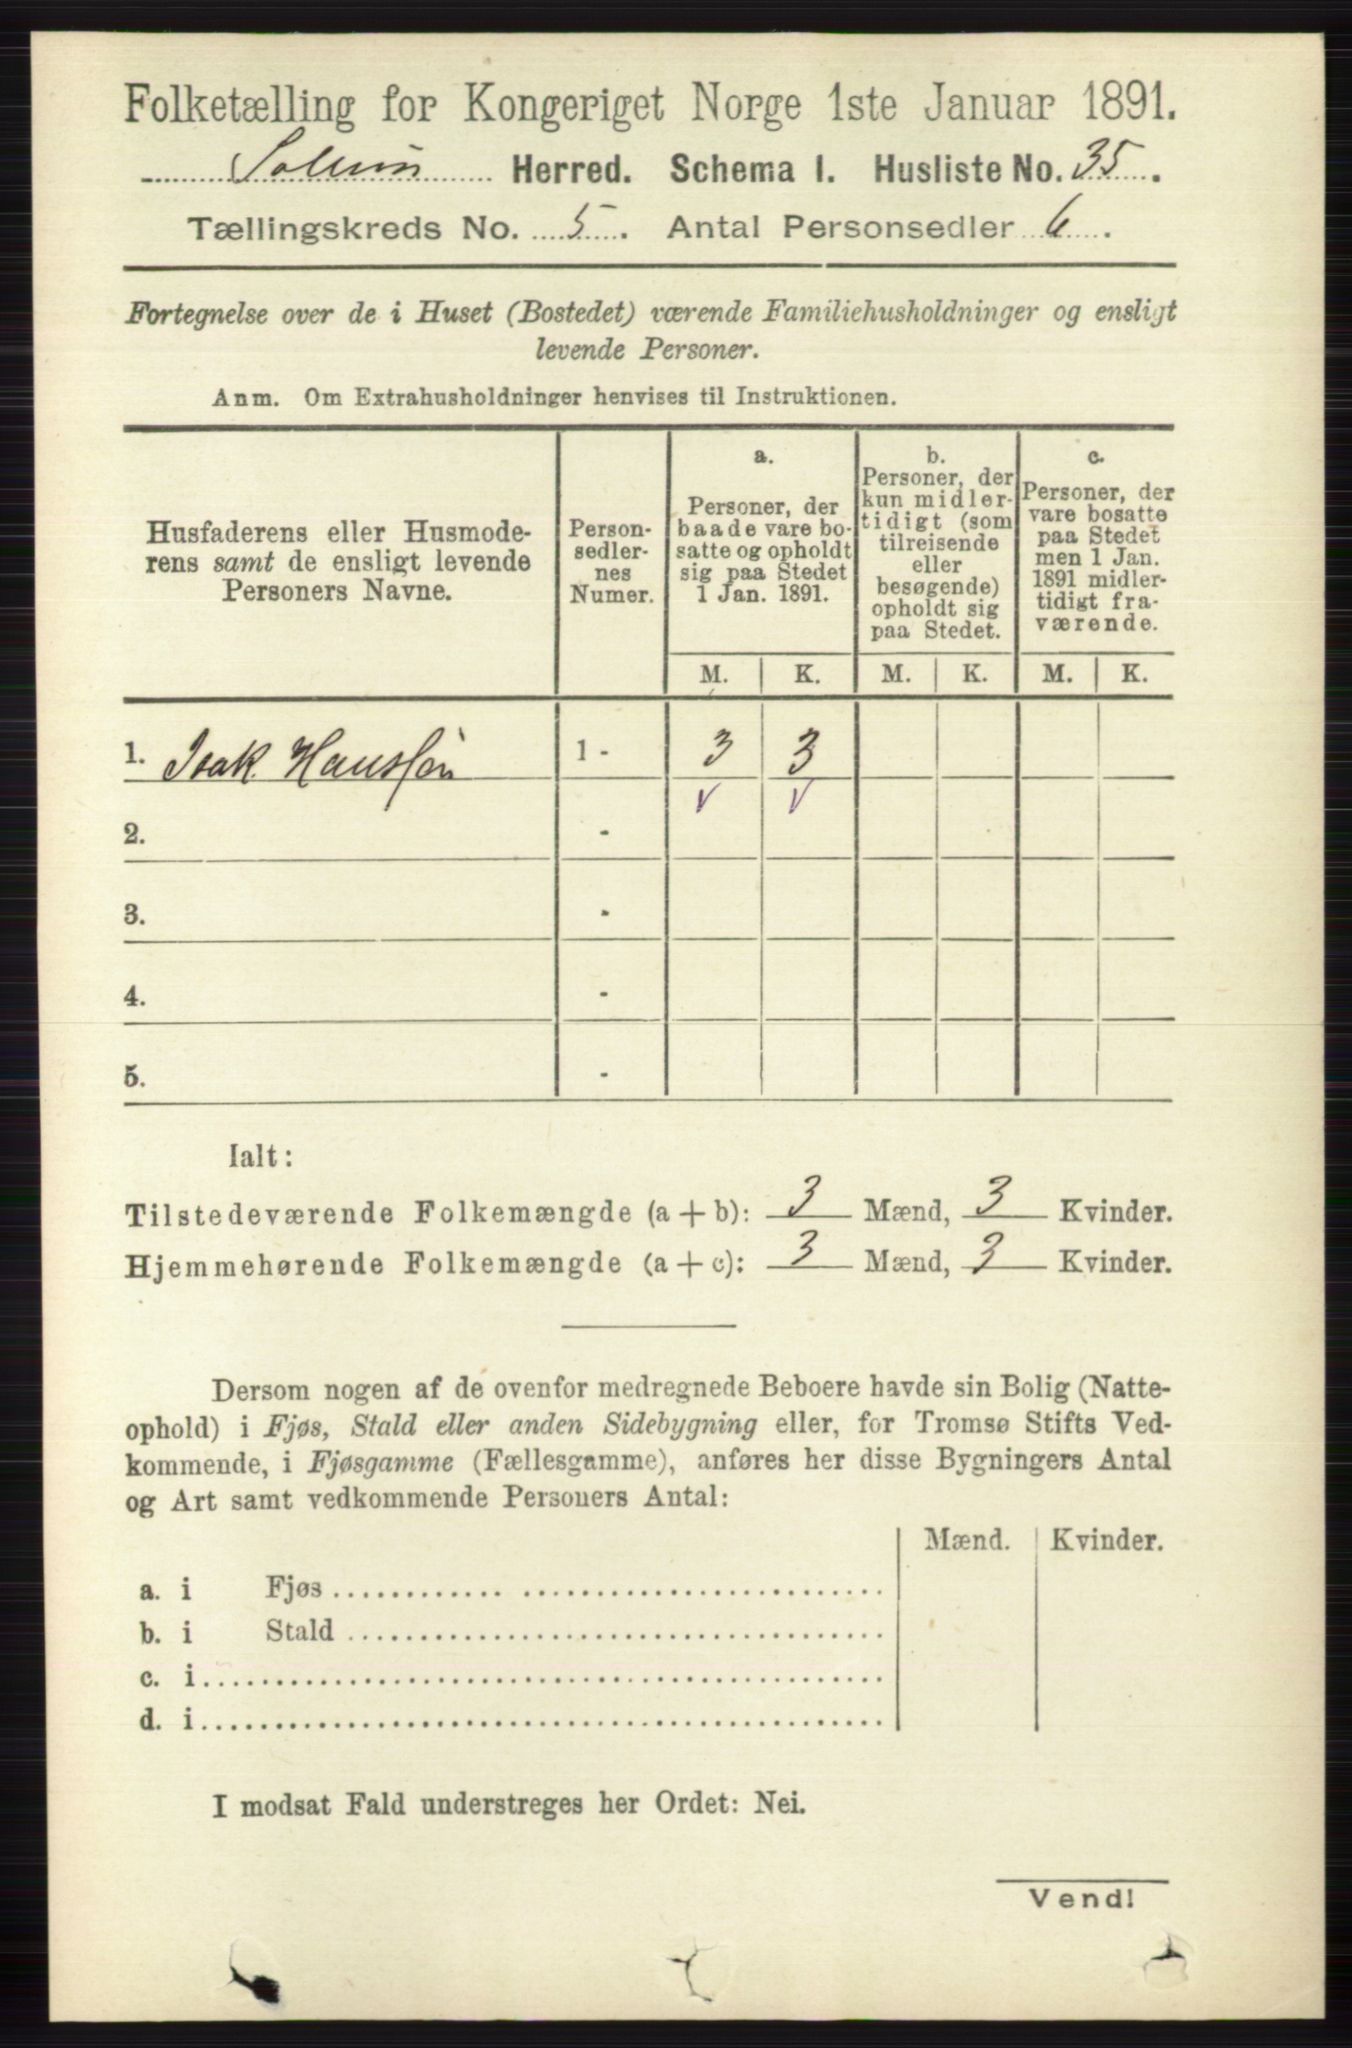 Folketælling for Kongeriget Norge 1ste Januar 1891.
Solum Herred. Schema I. Husliste No. 35.
Tællingskreds No. 5. Antal Personsedler 6.
Fortegnelse over de i Huset (Bostedet) værende Familiehusholdninger og ensligt
levende Personer.
Anm. Om Extrahusholdninger henvises til Instruktionen.
Husfaderens eller Husmode-
rens samt de ensligt levende
Personers Navne.
Person-
sedler-
nes
Numer.
a.
Personer, der
baade vare bo-
satte og opholdt
sig paa Stedet
1 Jan. 1891.
b.
Personer, der
kun midler-
tidigt (som
tilreisende
eller
besøgende)
opholdt sig
paa Stedet.
c.
Personer, der
vare bosatte
paa Stedet
men 1 Jan.
1891 midler-
tidigt fra-
værende.
M. K. M. K. M. K.
1. Isak Hanssøn 1 - 3 3
2. -
3. -
4. -
5. -
Ialt:
Tilstedeværende Folkemængde (a + b): 3 Mænd, 3 Kvinder.
Hjemmehørende Folkemængde (a + c): 3 Mænd, 3 Kvinder.
Dersom nogen af de ovenfor medregnede Beboere havde sin Bolig (Natte-
ophold) i Fjøs, Stald eller anden Sidebygning eller, for Tromsø Stifts Ved-
kommende, i Fjøsgamme (Fællesgamme), anføres her disse Bygningers Antal
og Art samt vedkommende Personers Antal:
Mænd. Kvinder.
a. i Fjøs
b. i Stald
c. i
d. i
I modsat Fald understreges her Ordet: Nei.
Vend!